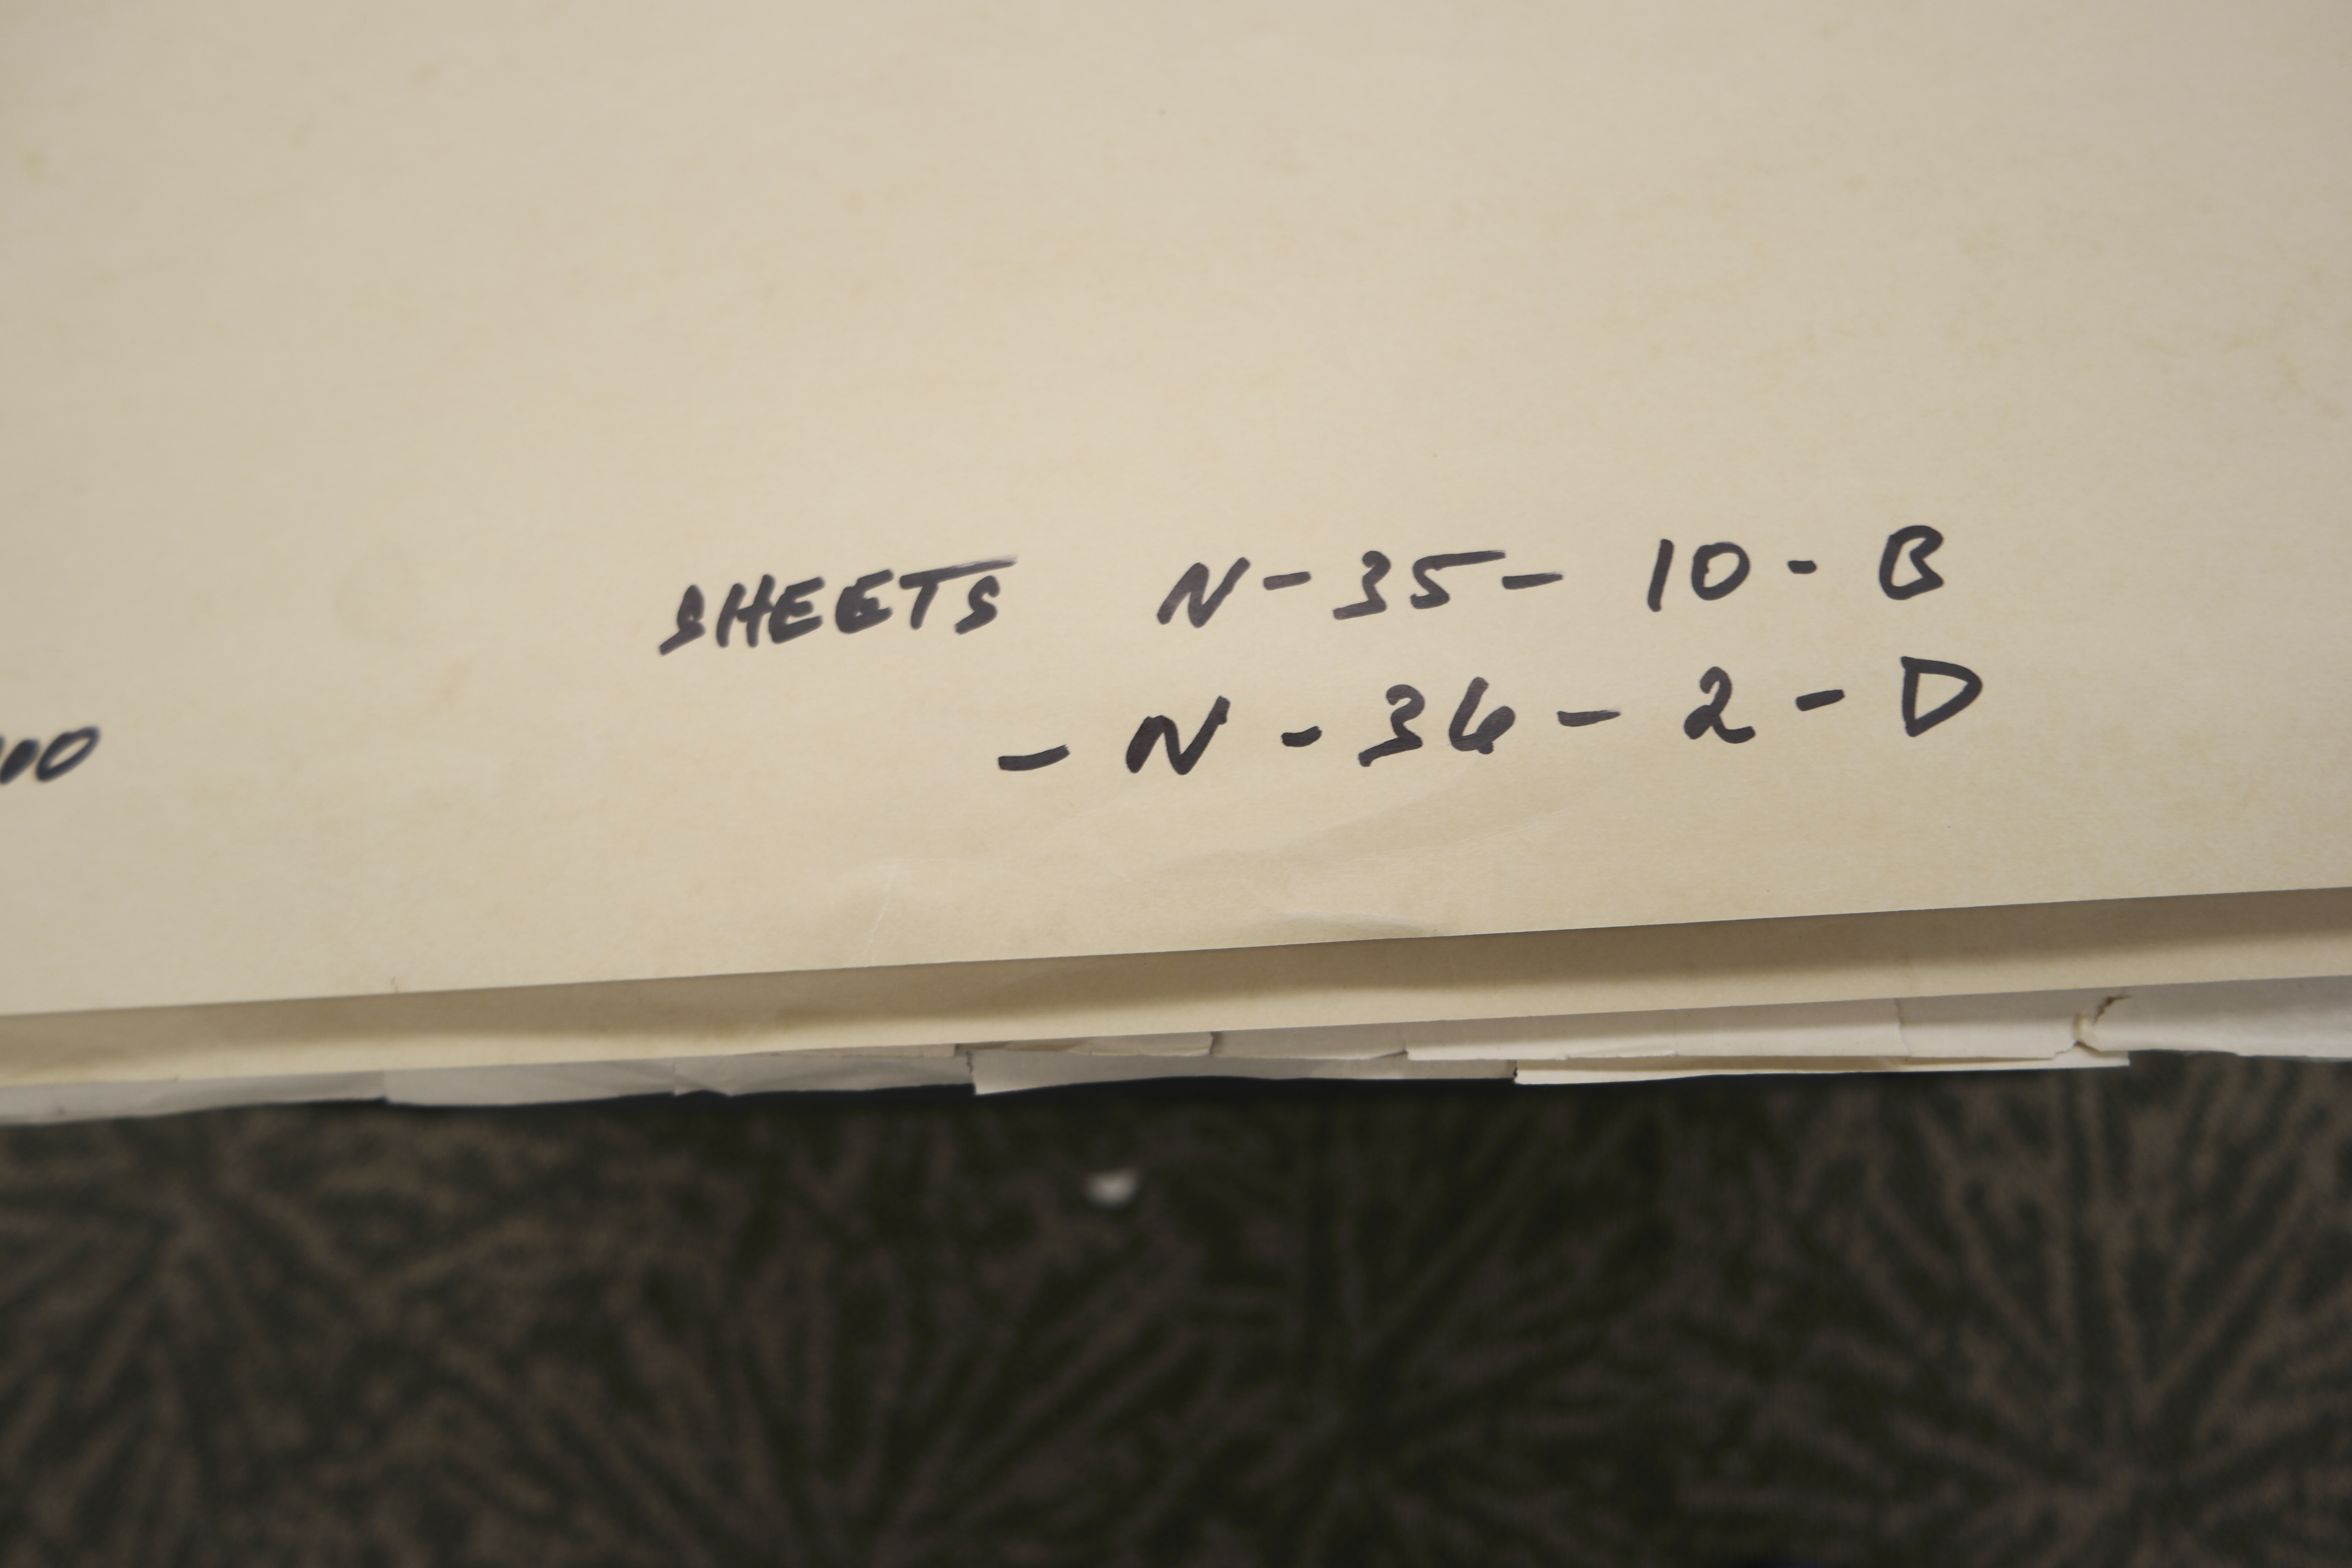 SHEETS N-35-10-B
-N-36-2-D
00